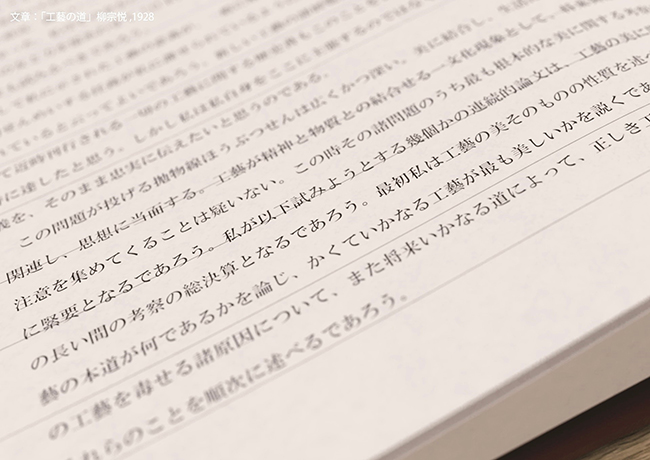 文章:「工藝の道」柳宗悦,1928
に達したと思う。しかし私は私自身をここに主張するのではな
義を、そのまま忠実に伝えたいと思うのである。
この問題が投げる拋物線ほうぶつせんは広くかつ深い。美に結合し、生活に
関連し、思想に当面する。工藝が精神と物質との結合せる一文化現象として、将来
注意を集めてくることは疑いない。この時その諸問題のうち最も根本的な美に関する
に緊要となるであろう。私が以下試みようとする幾個かの連続的論文は、工藝の美に
の長い間の考察の総決算となるであろう。最初私は工藝の美そのものの性質を述べ
藝の本道が何であるかを論じ、かくていかなる工藝が最も美しいかを説くであ
の工藝を毒せる諸原因について、また将来いかなる道によって、正しき工
れらのことを順次に述べるであろう。